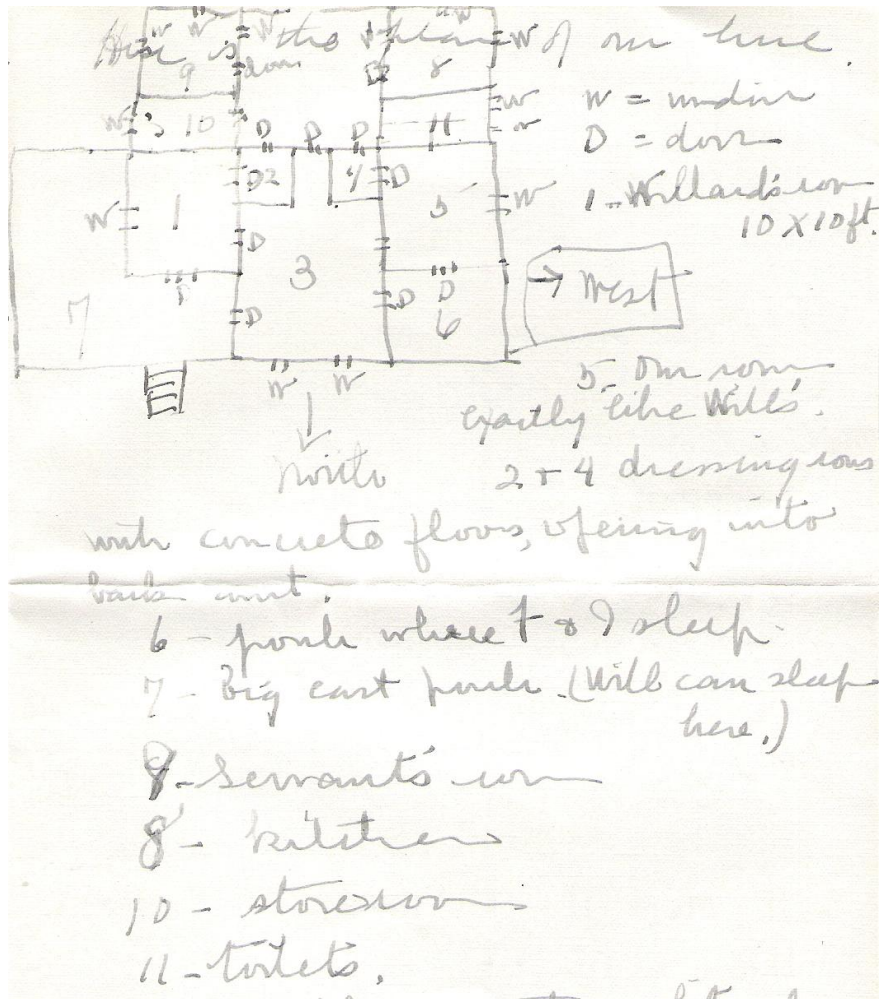 Here is the plan of our house
W = window
D = door
1 - Willard's room
10 X 10 ft.
W W W W
9 door D 8 W
W 10 W
D D D 11 W
D2 4 D
W 1 5 W
D 3
D D D
7 6
→ West
W W
5 - Our room
exactly like Will's.
North
2 + 4 dressing rooms
with concrete floors, opening into
back court.
6 - porch where F & I sleep.
7 - Big east porch. (Will can sleep
here.)
9 - Servants' room
8 - kitchen
10 - storeroom
11 - toilets.